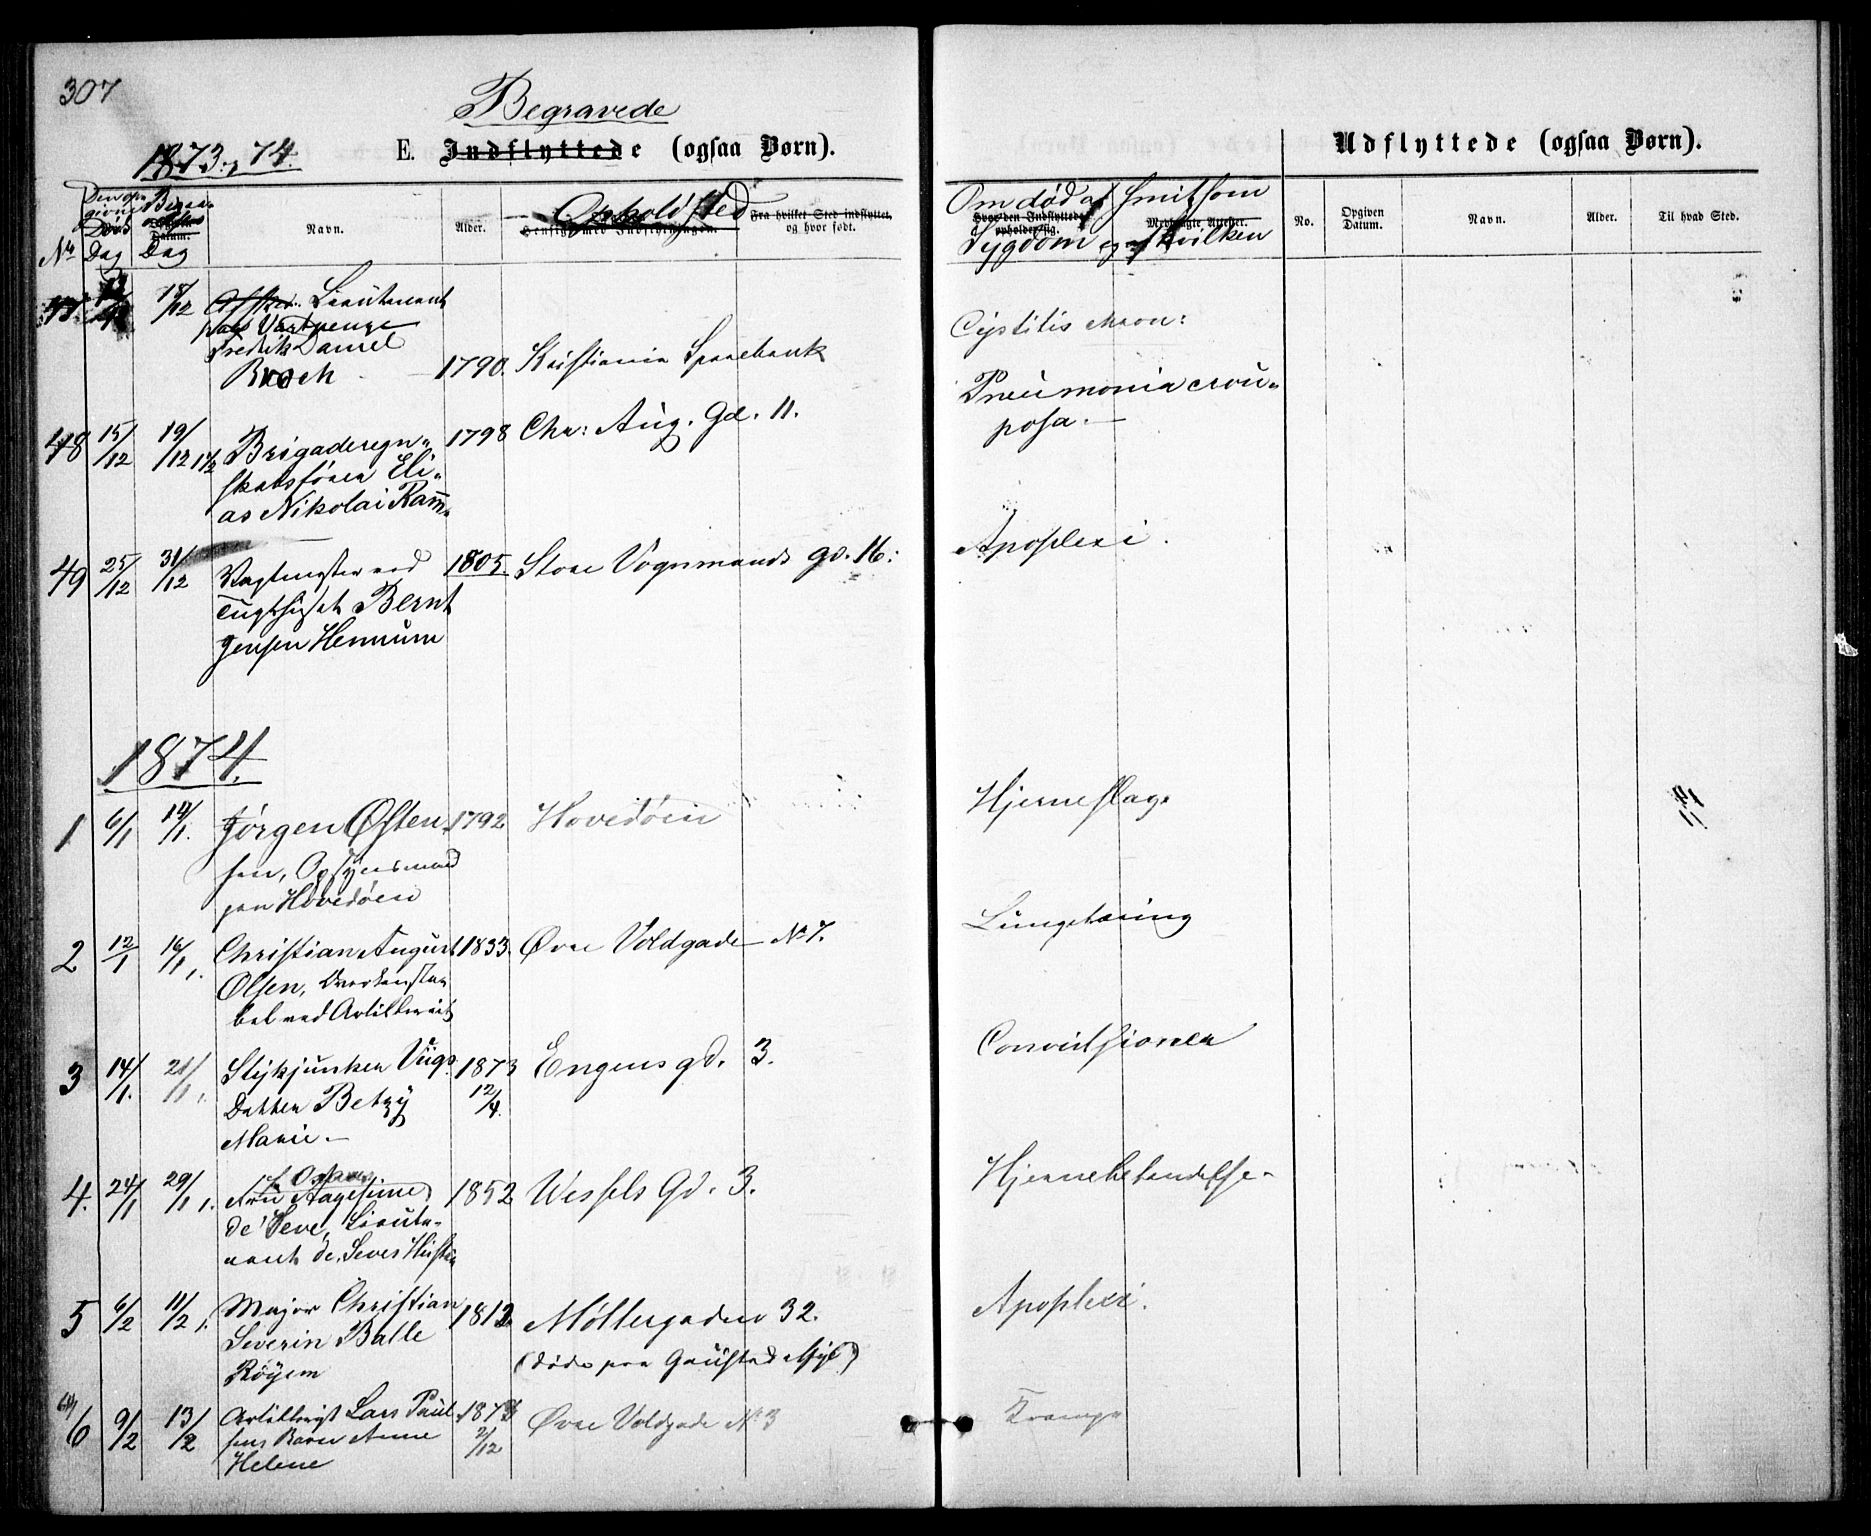 307
Begravede
1873, 74.
E. Indflyttede (ogsaa Børn).
Udflyttede (ogsaa Børn).
Døds Datum.
Navn. Alder. Opholdssted Fra hvilket Sted indflyttet, og hvor født.
Om død af smitsom
Sygdom og af hvilken
No. Opgiven Datum. Navn. Alder. Til hvad Sted.
No Dag Dag
18/12 Lieutenant
Fredrik Daniel
Broch 1790. Kristiania Sparebank
Cystitis chron:
48 15/12 19/12 Brigaderegn-
skabsfører Eli-
as Nikolai Ram
1798 Chr: Aug. Gd. 11.
Pneumonia crou-
posa.
49 25/12 31/12 Vagtmester ved
Tugthuset Bernt
Jensen Hennum
1805. Store Vognmands gd. 16.
Apoplexi.
1874.
1 6/1 14/1. Jørgen Østen-
sen, Opsynsmand
paa Hovedøen
1792 Hovedøen
Hjerneslag
2 12/1 16/1 Christian August
Olsen,
bel ved Artilleriet
1833. Øvre Voldgade No 7.
Lungetæring
3 14/1. 21/1 Stykjunker Viigs
Datter Betzy
Marie.
1873 12/4. Engens gd. 3.
Convulsioner
4. 24/1 29/1
de Seve, Lieute-
nant de Seves Hustru
1852 Wessels Gd. 3.
Hjernebetændelse
5 6/2 11/2 Major Christian
Severin Balle
Röyem
1812 Møllergaden 32.
(døde paa Gaustad Asyl)
Apoplexi.
6 9/2 13/2 Artillerist Lars Paul
sens Barn Anne
Helene
1873 2/12 Øvre Voldgade No 3
Krampe